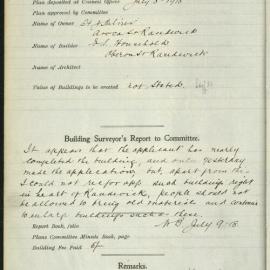 Plan deposited at Council Office July 8 - 1918
Plan approved by Committee
Name of Owner
Avoca St Randwick
Name of Builder Household
Oberon St Randwick
Name of Architect
Value of Buildings to be erected not Stated.
Building Surveyor's Report to Committee.
It appears that the applicant has nearly
completed the building, and only yesterday
made the application, but, apart from this
I could not approve such buildings right
in heart of Randwick, people should not
be allowed to bring old materials and
to enlarge buildings such as these.
Report Book, folio July 9-18.
Plans Committee Minute Book, page
Building Fee Paid
Remarks.